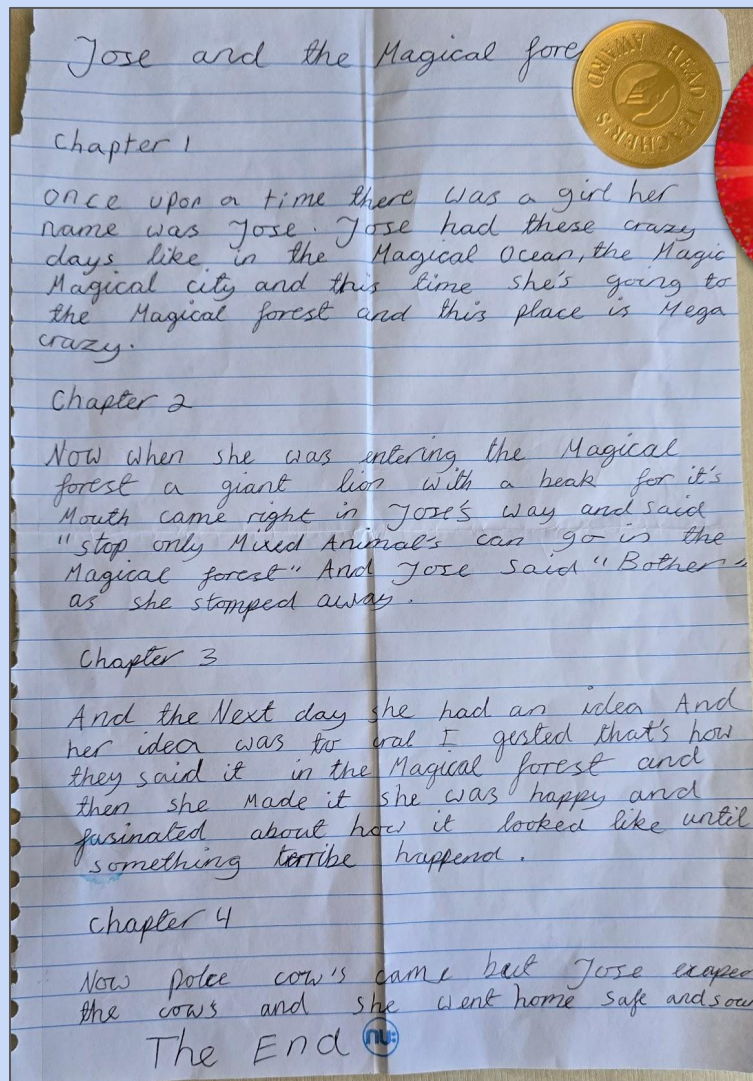 Jose and the Magical fore
TEACHER'S
AWARD
Chapter 1
once upon a time there was a girl her
name was Jose. Jose had these crazy
days like in the Magical Ocean, the Magic
Magical city and this time she's going to
the Magical forest and this place is Mega
crazy.
Chapter 2
Now when she was entering the Magical
forest a giant lion with a beak for it's
Mouth came right in Jose's way and said
"stop only Mixed Animal's can go in the
Magical forest" And Jose said "Bother"
as she stomped away.
Chapter 3
And the Next day she had an idea And
her idea was to I gested that's how
they said it in the Magical forest and
then she Made it she was happy and
fusinated about how it looked like until
something terribe happend.
Chapter 4
Now police cow's came but Jose exapee
the cows and she went home safe and sou
The End
nu: